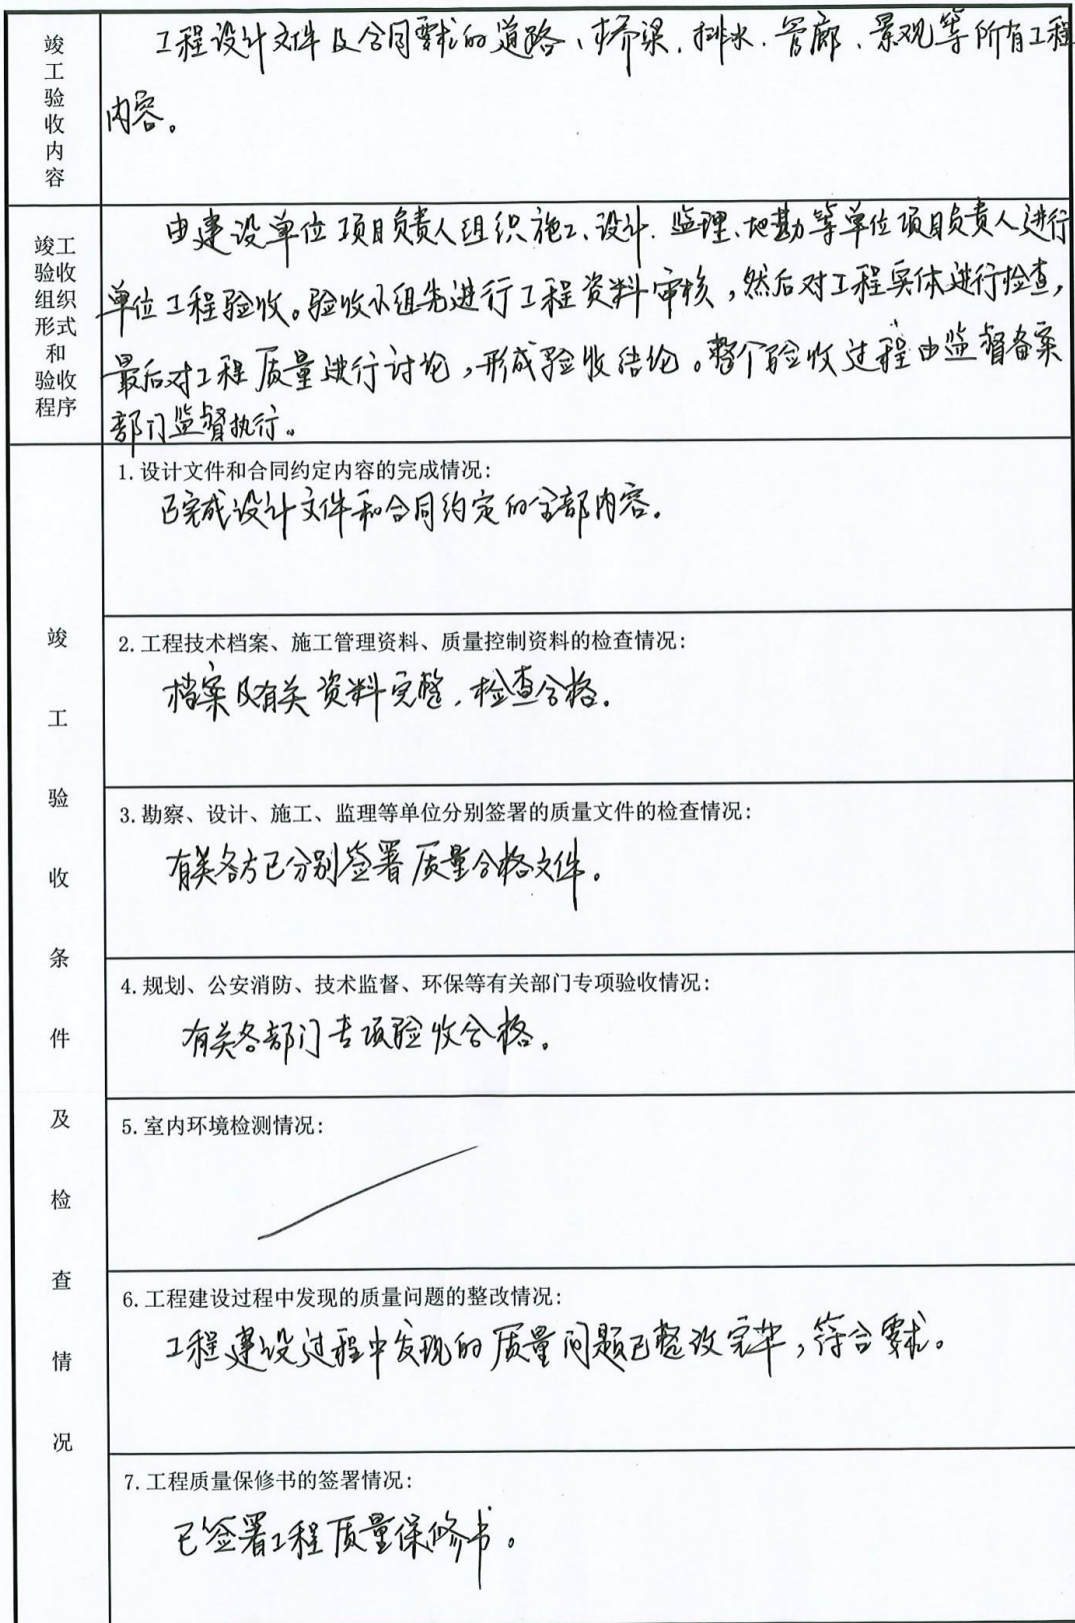 竣工验收内容
工程设计文件及合同要求的道路、桥梁、排水、管廊、景观等所有工程
内容。
竣工
验收
组织
形式
和
验收
程序
由建设单位项目负责人组织施工、设计、监理、地勘等单位项目负责人进行
单位工程验收。验收小组先进行工程资料审核，然后对工程实体进行检查，
最后对工程质量进行讨论，形成验收结论。整个验收过程由监督备案
部门监督执行。
竣工验收条件及检查情况
1.设计文件和合同约定内容的完成情况:
已完成设计文件和合同约定的全部内容。
2.工程技术档案、施工管理资料、质量控制资料的检查情况:
档案及有关资料完整，检查合格。
3.勘察、设计、施工、监理等单位分别签署的质量文件的检查情况:
有关各方已分别签署质量合格文件。
4.规划、公安消防、技术监督、环保等有关部门专项验收情况:
有关各部门专项验收合格。
5.室内环境检测情况:
6.工程建设过程中发现的质量问题的整改情况:
工程建设过程中发现的质量问题已整改完毕，符合要求。
7.工程质量保修书的签署情况:
已签署工程质量保修书。